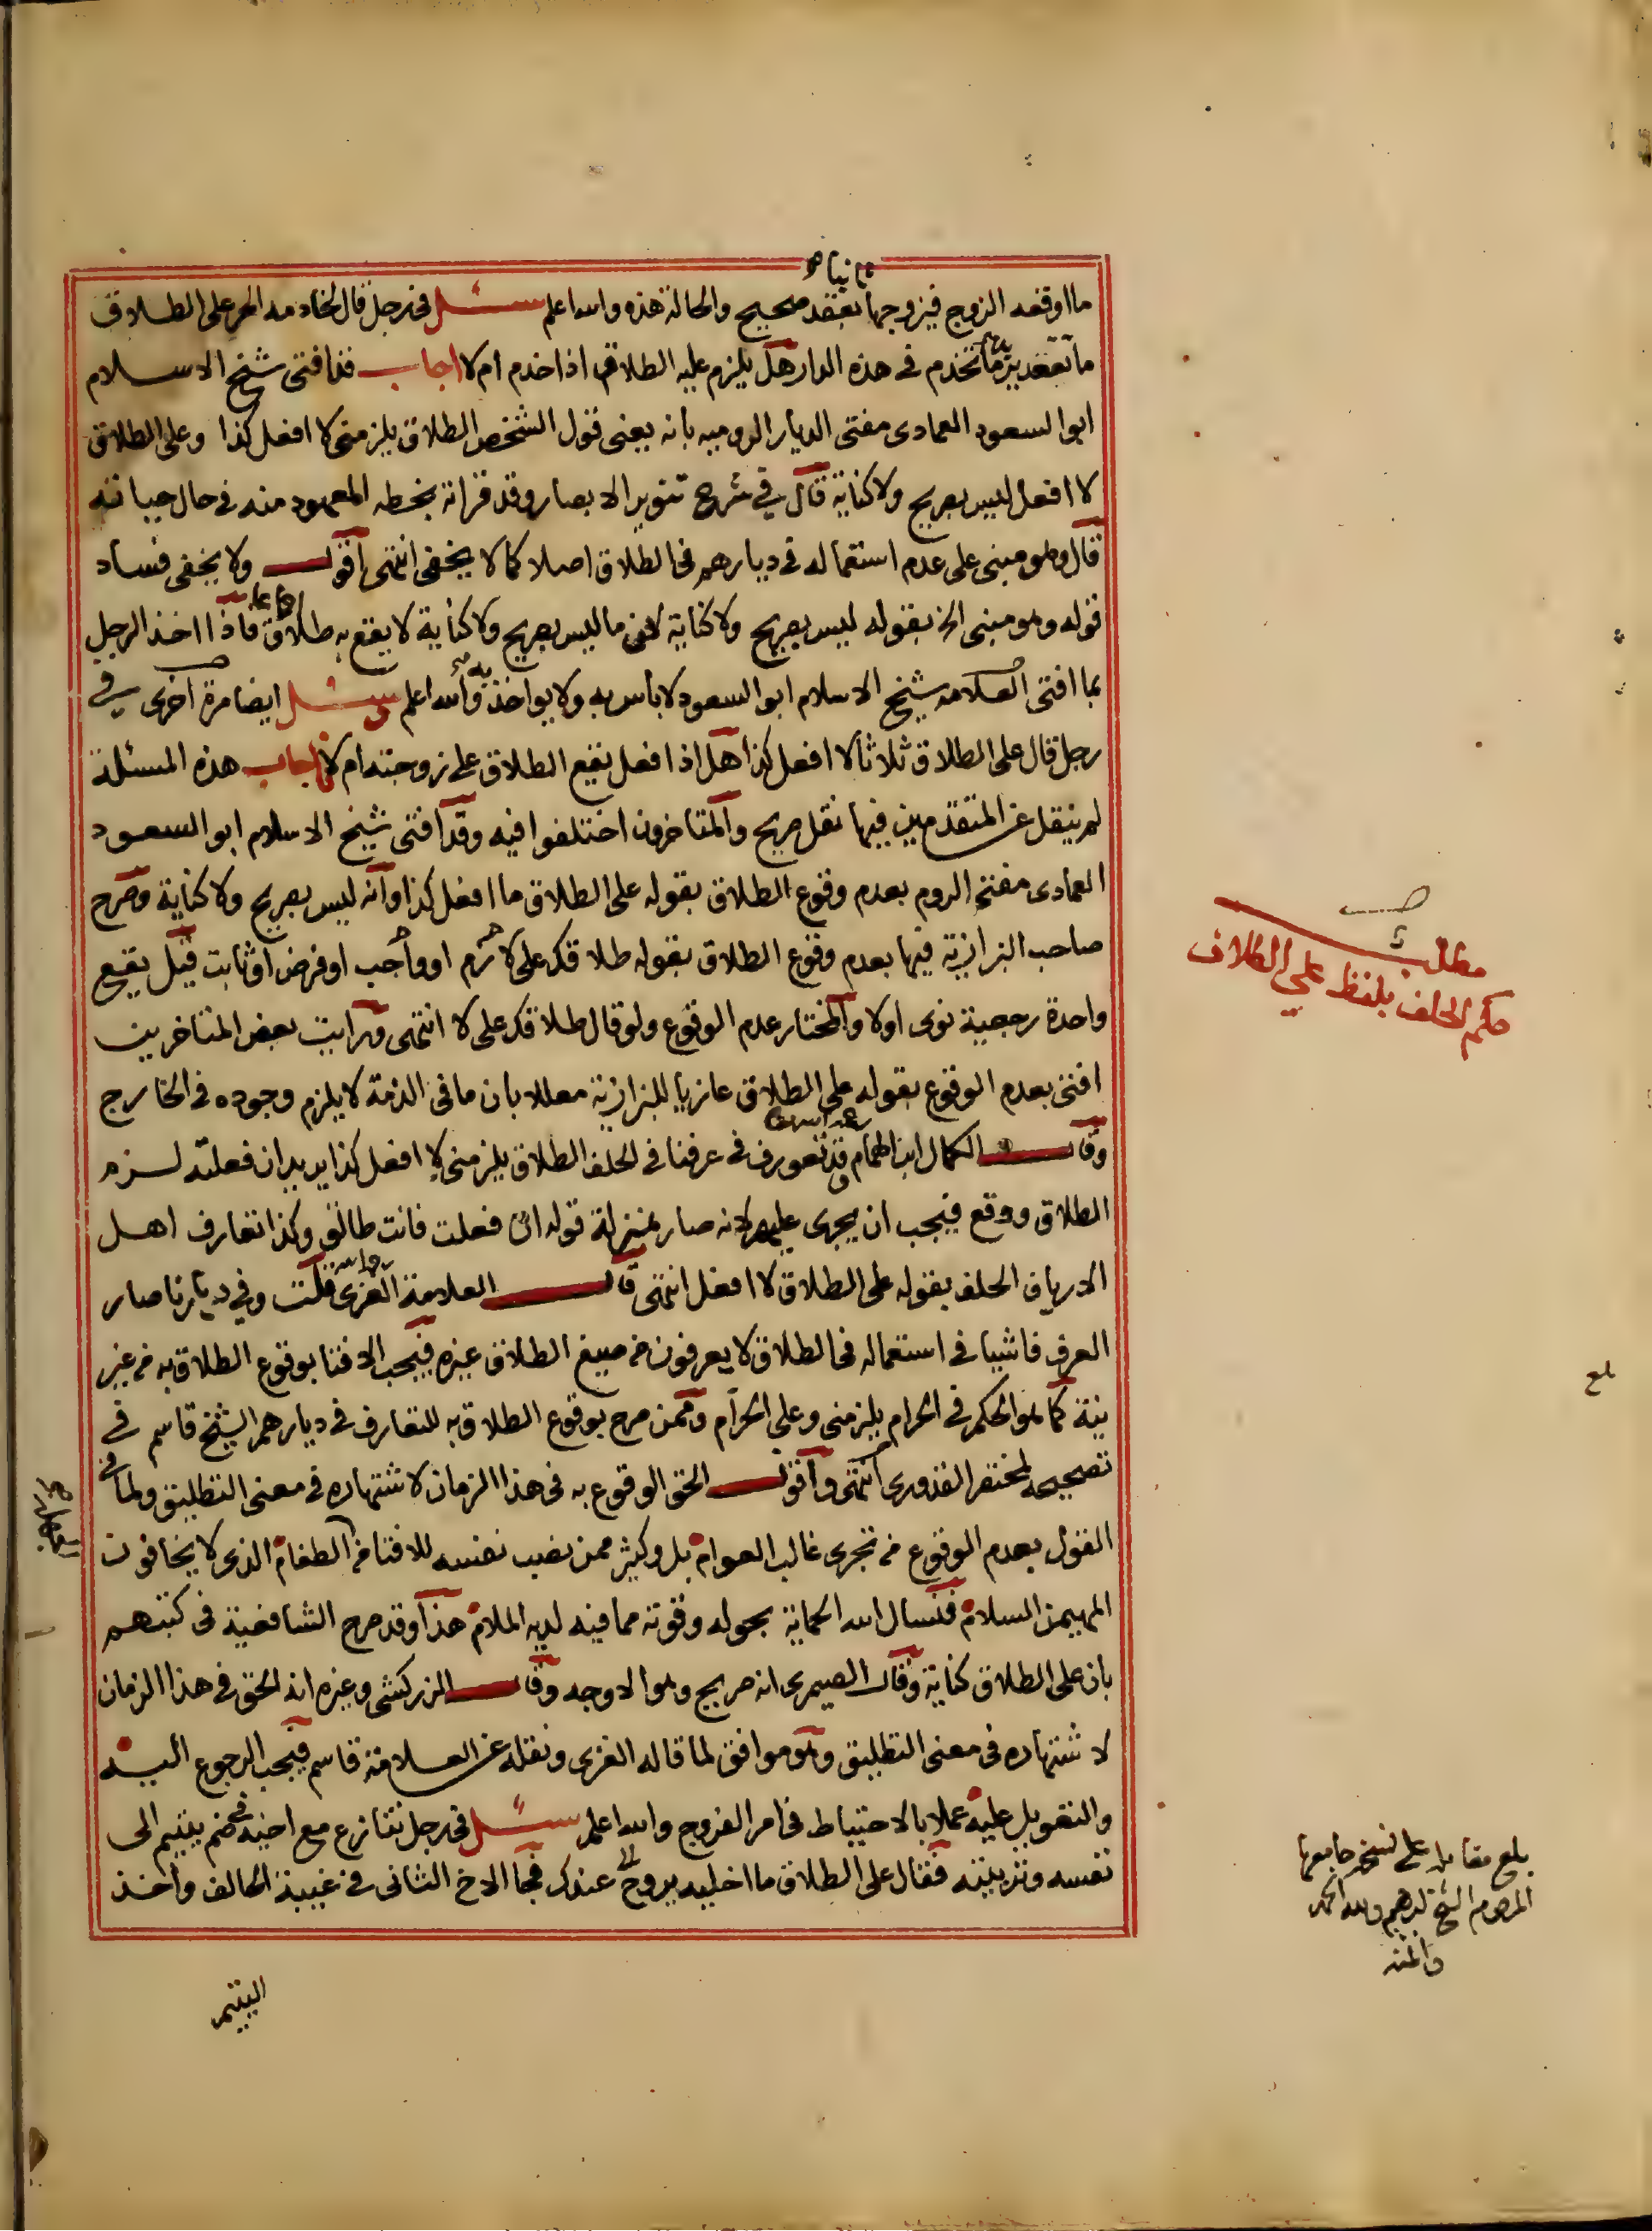 ثانيا صح
ما اوقعه الزوج فيزوجها بعقد صحيح والحالة هذه والله اعلم سئل في رجل قال لخادمه الحر على الطلاق
ما تقعد تخدم في هذه الدار هل يلزم عليه الطلاق اذا خدم ام لا اجاب قد افتى شيخ الاسلام
ابو السعود العمادى مفتى الديار الروميه بانه يعنى قول الشخص الطلاق يلزمنى لا افعل كذا وعلى الطلاق
لا افعل ليس بصريح ولا كناية قال في شرح تنوير الابصار وقد قراته بخطه المعهود منه في حال حياته
قال وهو مبنى على عدم استعماله في ديارهم في الطلاق اصلا كما لا يخفى انتهى اقول ولا يخفى فساد
قوله وهو مبنى الخ بقوله ليس بصريح ولا كناية لان ما ليس بصريح ولا كناية لا يقع به طلاق اجماعا فاذا اخذ الرجل
بما افتى العلامه شيخ الاسلام ابو السعود لا باس به ولا يواخذ به والله اعلم سئل ايضا مرة اخرى في
رجل قال على الطلاق ثلاثا لا افعل كذا هل اذا فعل يقع الطلاق على زوجته ام لا اجاب هذه المسئلة
لم ينقل عن المتقدمين فيها نقل صريح والمتاخرون اختلفوا فيه وقد افتى شيخ الاسلام ابو السعود
العمادى مفتى الروم بعدم وقوع الطلاق بقوله على الطلاق ما افعل كذا وانه ليس بصريح ولا كناية وصرح
صاحب البزازية فيها بعدم وقوع الطلاق بقوله طلاقك على لازم او واجب او فرض او ثابت قيل يقع
واحدة رجعية نوى اولا والمختار عدم الوقوع ولو قال طلاقك على لا انتهى ورايت بعض المتاخرين
افتى بعدم الوقوع بقوله على الطلاق عازيا للبزازية معللا بان ما في الذمة لا يلزم وجوده في الخارج
وقال الكمال ابن الهمام وقد تعورف في عرفنا في الحلف الطلاق يلزمنى لا افعل كذا يريد ان فعلته لزم
الطلاق ووقع فيجب ان يجرى عليهم لانه صار بمنزلة قوله ان فعلت فانت طالق وكذا تعارف اهل
الارياف الحلف بقوله على الطلاق لا افعل انتهى قال العلامة الغزى قلت وفي ديارنا صار
العرف فاشيا في استعماله في الطلاق لا يعرفون من صيغ الطلاق غيره فيجب الافتا بوقوع الطلاق به من غير
نية كما هو الحكم في الحرام يلزمنى وعلى الحرام وممن صرح بوقوع الطلاق به للتعارف في ديارهم الشيخ قاسم في
تصحيحه لمختصر القدورى انتهى واقول الحق الوقوع به في هذا الزمان لاشتهاره في معنى التطليق ولما في
القول بعدم الوقوع من تجرى غالب العوام بل وكثير ممن نصب نفسه للافتا من الطغام الذى لا يخافون
المهيمن السلام فنسال الله الحماية بحوله وقوته مما فيه لديه الملام هذا وقد صرح الشافعية في كتبهم
بان على الطلاق كناية وقال الصيمرى انه صريح وهو الاوجه وقال الزركشى وغيره انه الحق في هذا الزمان
لاشتهاره في معنى التطليق وهو موافق لما قاله الغزى ونقله عن العلامة قاسم فيجب الرجوع اليه
والتعويل عليه عملا بالاحتياط في امر الفروج والله اعلم سئل في رجل تنازع مع اخيه في ضم يتيم الى
نفسه وتربيته فقال على الطلاق ما اخليه يروح عندك فجا الاخ الثانى في غيبة الحالف واخذ
اليتيم
مطلب
حكم الحلف بلفظ علي الطلاق
بلغ
بلغ مقابلة على نسخة جامعها
المرحوم الشيخ ابراهيم ولله الحمد
والمنه